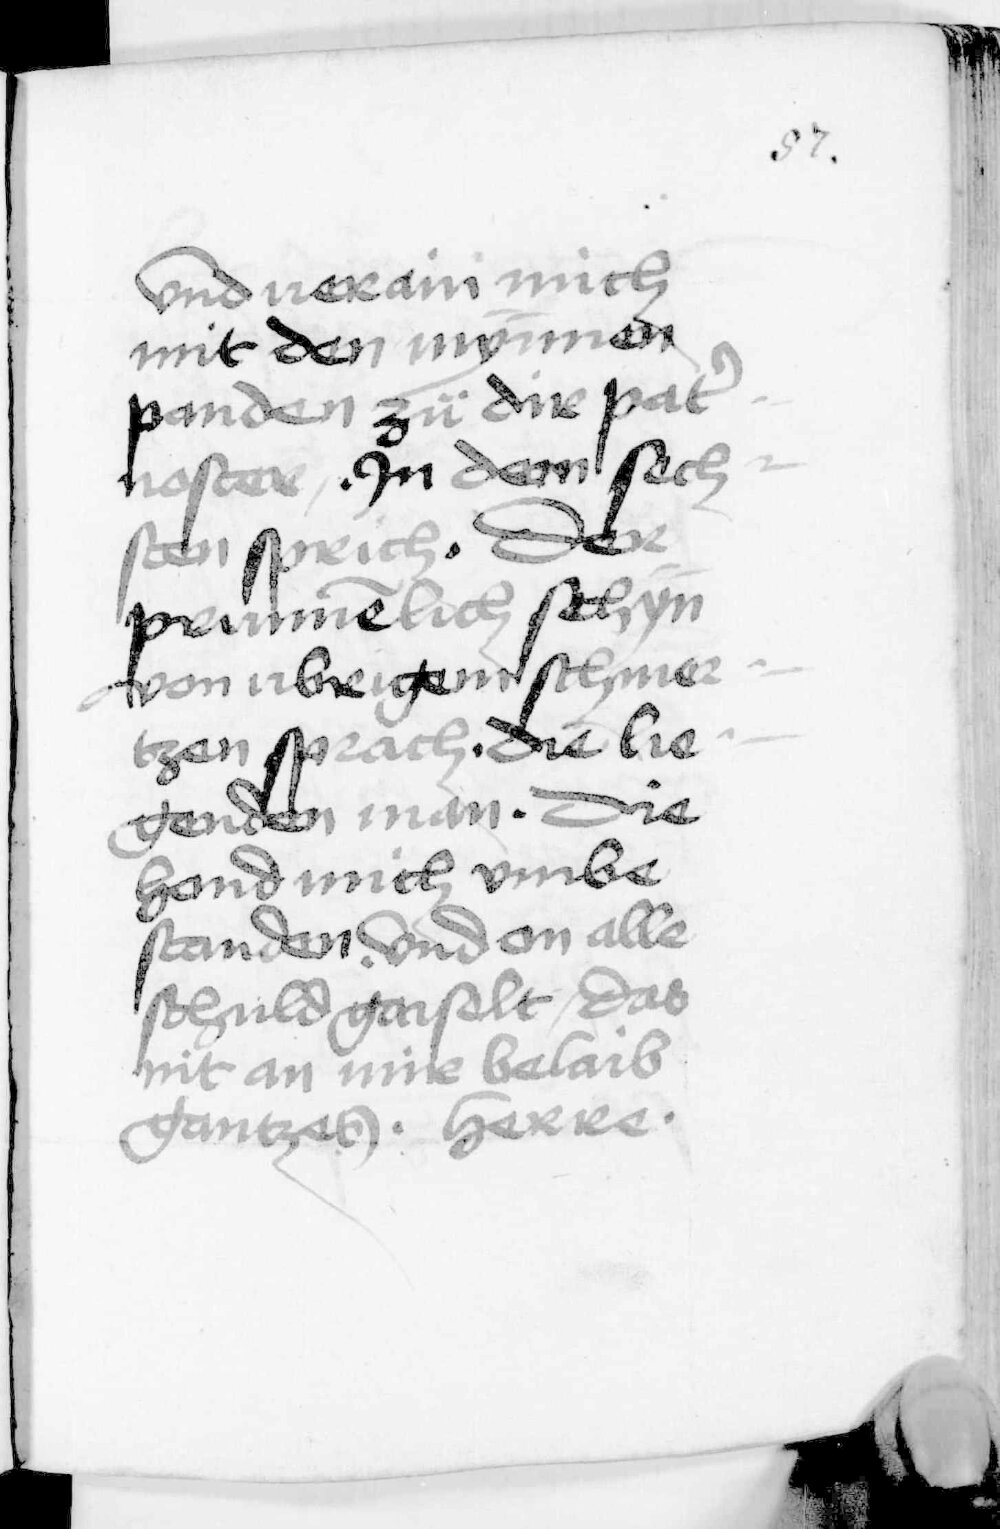 87.
vnd uerain mich
mit den mӱnnen
panden zü dir pat᾽
noster / .In dem sech
sten sprich. Der
prinnēlich schӱn
von ubrigem schmer
tzen sprach. die lie
genden man. Die
hond mich vmbe
standen. vnd on alle
schuld gaiselt / das
nit an mir belaib
gantzes. herre.